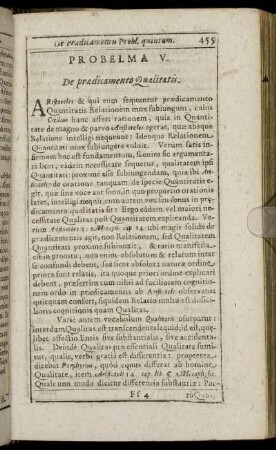 De Prædicamentis Probl. quintum. 455
PROBELMA V.
De prædicamento Qualitatis.
ARistoteles & qui eum sequuntur prædicamento
Quantitatis Relationem mox subjungunt, cujus
hanc affert rationem, quia in Quanti-
tate de magno & parvo Aristoteles egerat, quæ absque
Relatione intelligi nequeunt: Ideoque Relationem
Quantitati mox subjungere voluit. Verum satis in-
firmum hoc est fundamentum, sicenim sic argumenta-
ri licet, eadem necessitate sequetur, qualitatem ipsi
Quantitati proxime esse subjungendam, quia ibi Ari-
stoteles de oratione tanquam de specie Quantitatis e-
git, quæ sine voce aut sono, in quo proportio orationis
latet, intelligi nequit, cum autem vox seu sonus in præ-
dicamento qualitatis sit: Ergo eadem vel majori ne-
cessitate Qualitas post Quantitatem explicanda. Ve-
rum Aristoteles 5. Metaph. cap. 14. ubi magis solide de
prædicamentis agit, non Relationem, sed Qualitatem
Quantitati proxime subjunxit, & ratio manifesta
est in promtu; non enim absolutum & relatum inter
se confundi debent, sed sicut absoluta naturæ ordine
priora sunt relatis, ita quoque priori ordine explicari
debent, præsertim cum nihil ad faciliorem cognitio-
nem ordo in prædicamentis ab Aristotele observatus
quicquam confert, siquidem Relatio multo est difficil-
lioris cognitionis quam Qualitas.
Varie autem vocabulum Qualitatis usurpatur:
interdum Qualitas est transcendentale quid, id est, quæ-
libet affectio Entis sive substantialis, sive accidenta-
lis. Deinde Qualitas pro essentiali Qualitate sumi-
tur, qualis, verbi gratiâ est differentia: propterea
dicebat Porphyrius, quod equus differat ab homine
Qualitate, item Aristoteles
Quale uno modo dicitur differentia substantiæ: Pac-
Ff 4